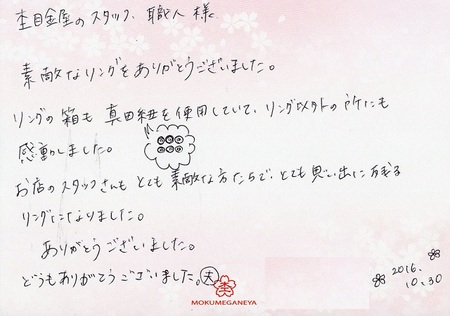 杢目金屋のスタッフ、職人様
素敵なリングをありがとうございました。
リングの箱も真田紐を使用していて、リング以外の所にも
感動しました。
お店のスタッフさんもとても素敵な方たちで、とても思い出に残る
リングになりました。
ありがとうございました。
どうもありがとうございました。夫
MOKUMEGANEYA
2016.
10.30